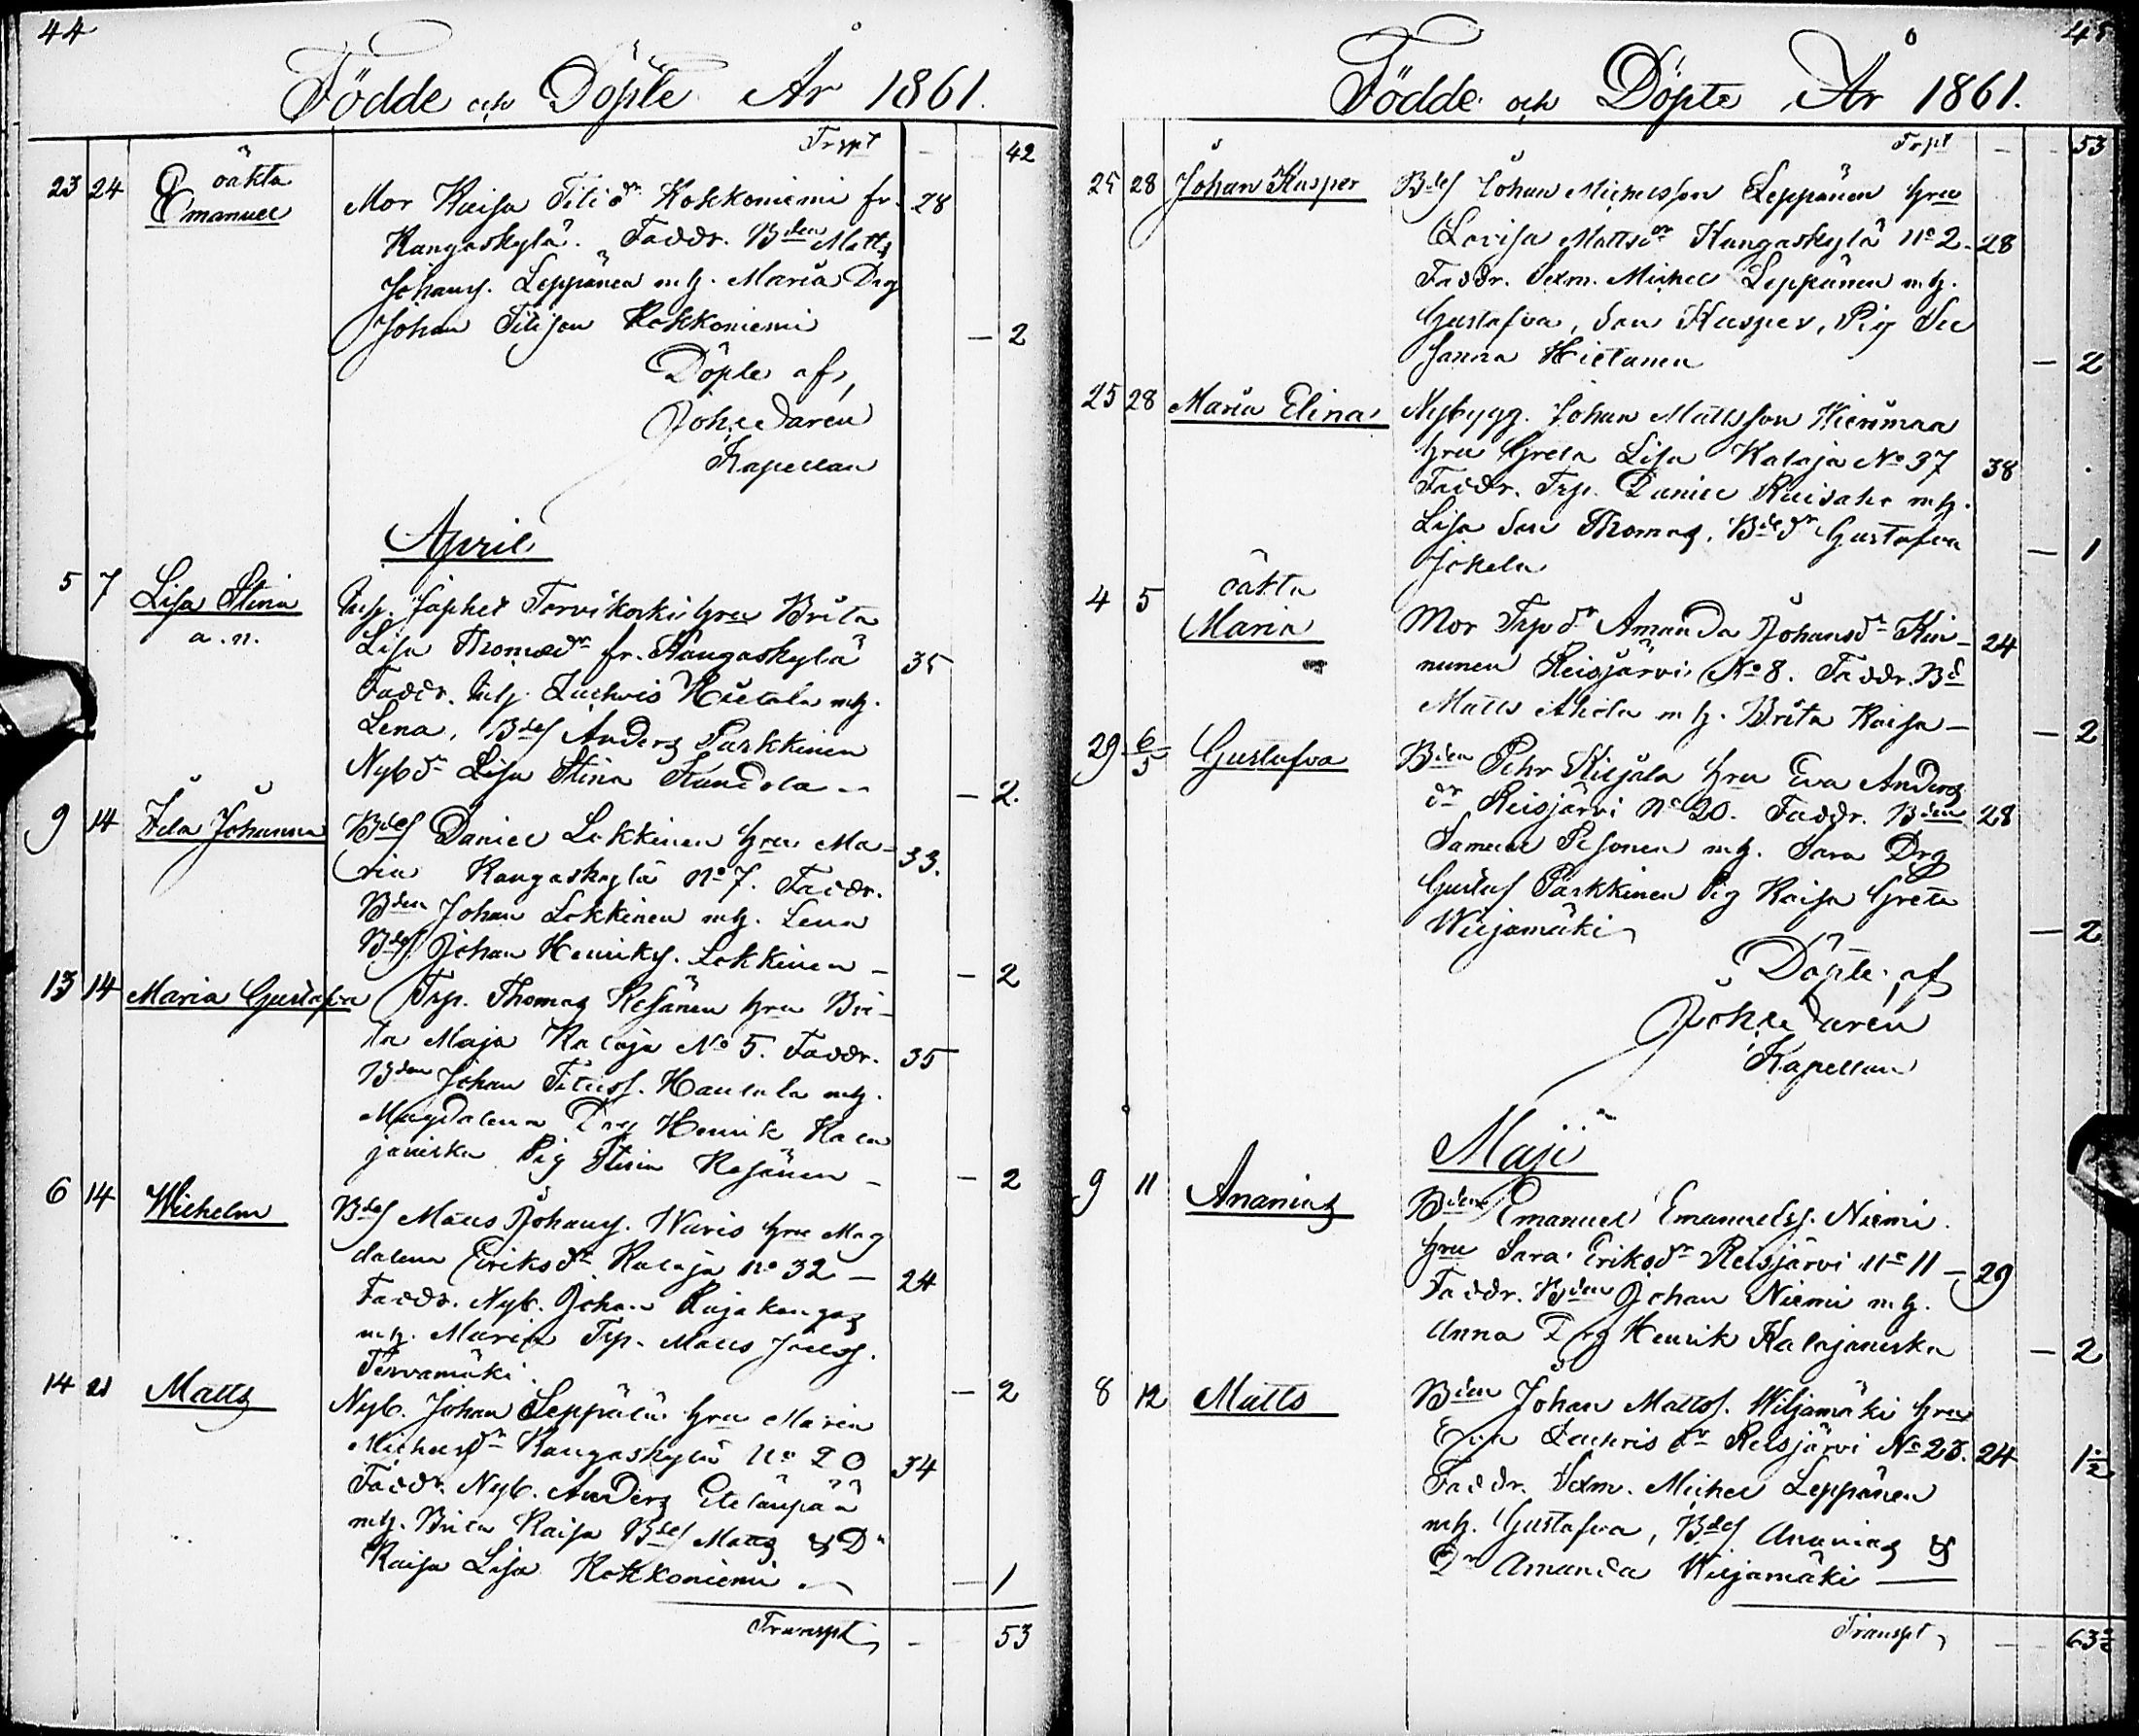 44
Födde och Döpte År 1861.
Trspt - - 42
23 24 oäkta
Emanuel
Mor Kaisa Filisdr Kokkoniemi fr. 28
Kangaskylä. Faddr. Bden Matts
Johans. Leppänen m h. Maria Drg
Johan Filison Kokkoniemi — 2
Döpte af,
Joh:
Kapellan
April
5 7 Lisa Stina
a. n.
Inh. Japhet Torvikoski hru Brita
Lisa Thomædr fr. Kangaskylä 35
Faddr. Inh. Zachris Hietala mh.
Lena, Bdes Anders Parkkinen
Nybdr Lisa Stina Kandola — 2.
9 14 Ida Johanna
Bdes Daniel Lokkinen hru Ma- 33.
ria Kangaskylä No 7. Faddr.
Bden Johan Lokkinen mh. Lena
Bdes Johan Henriks. Lokkinen — — 2
13 14 Maria Gustafva
Trp. Thomas Kesänen hru Bri-
ta Maja Kalaja No 5. Faddr. 35
Bden Johan Tituss. Hautala mh.
Magdalena Drg Henrik Kala
janiska Pig Stina Kesänen — — 2
6 14 Wilhelm
Bdes Matts Johans. Waris hru Mag
dalena Eriksdr Kalaja No 32 — 24
Faddr. Nyb. Johan Rajakangas
mh. Maria Trp. Matts Joels.
Tervamäki. — 2
14 21 Matts
Nyb. Johan Leppälä hru Maria
Michelsdr Kangaskylä No 20 34
Faddr. Nyb. Anders Eteläupää
mh. Brita Kaisa Bdes Matts & Dr
Kaisa Lisa Kokkoniemi. — 1
Transpt - 53
45
Födde och Döpte År 1861.
Trpt - - 53
25 28 Johan Kasper
Bdes Johan Michelsson Leppänen hru
Lovisa Mattsdr Kangaskylä No 2. 28
Faddr. Sexm. Michel Leppänen mh.
Gustafva, Son Kasper, Pig Su
sanna Hietanen — 2
25 28 Maria Elina
Nybygg. Johan Mattsson Hiersmaa
hru Greta Lisa Kalaja No 37 38
Faddr. Trp. Daniel mh.
Lisa Son Thomas, Bdedr Gustafva
Jokela — 1
4 5 oäkta
Maria
Mor Trpdr Amanda Johansdr Kin- 24
nunen Reisjärvi No 8. Faddr. Bd
Matts Ahola mh. Brita Kaisa — — 2
29 6/5 Gustafva
Bden Pehr Kiljala hru Eva Anders
dr Reisjärvi No 20. Faddr. Bden 28
Samuel Pesonen mh. Sara Drg
Gustaf Parkkinen Pig Kaisa Greta
Wiljamäki — 2
Döpte af
Joh:
Kapellan
Maji
9 11 Ananias
Bden Emanuel Emanuelss. Niemi.
hru Sara Eriksdr Reisjärvi No 11 — 29
Faddr. Bden Johan Niemi mh.
Anna Drg Henrik Kalajaniska — 2
8 12 Matts
Bden Johan Mattss. Wiljamäki hru
Eva Zachrisdr Reisjärvi No 23. 24 1½
Faddr. Sexm. Michel Leppänen
mh. Gustafva, Bdes Ananias &
Dr Amanda Wiljamäki —
Transpt - - 63½